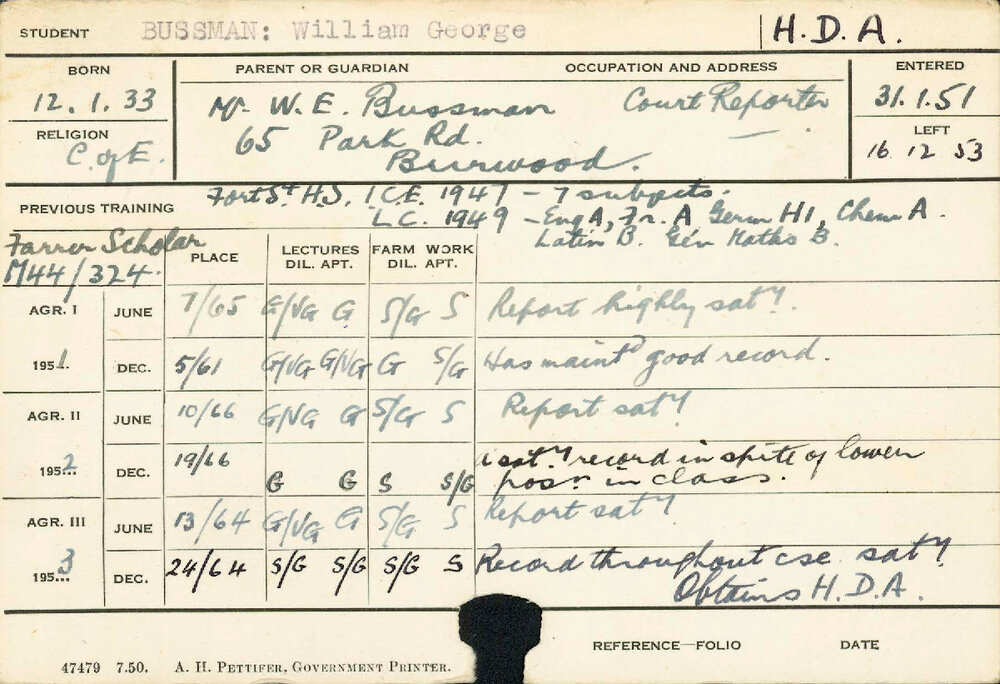 STUDENT BUSSMAN: William George H.D.A.
BORN PARENT OR GUARDIAN OCCUPATION AND ADDRESS ENTERED
12.1.33 Mr. W.E. Bussman Court Reporter 31.1.51
RELIGION 65 Park Rd. — LEFT
C. of E. Burwood. 16 12 53
Fort St H.S. I.C.E. 1947 – 7 subjects.
PREVIOUS TRAINING L.C. 1949 – Eng A, Fr. A Germ H1, Chem A.
Farrer Scholar Latin B. Gen Maths B.
M44/324. PLACE LECTURES DIL. APT. FARM WORK DIL. APT.
AGR. I JUNE 7/65 G/VG G S/G S Report highly satʸ.
1951. DEC. 5/61 G/VG G/VG G S/G Has maintᵈ good record.
AGR. II JUNE 10/66 G/VG G S/G S Report satʸ
1952 DEC. 19/66 G G S S/G A satʸ record in spite of lower
posn in class.
AGR. III JUNE 13/64 G/VG G S/G S Report satʸ
1953 DEC. 24/64 S/G S/G S/G S Record throughout cse satʸ.
Obtains H.D.A.
REFERENCE—FOLIO DATE
47479 7.50. A. H. PETTIFER, GOVERNMENT PRINTER.